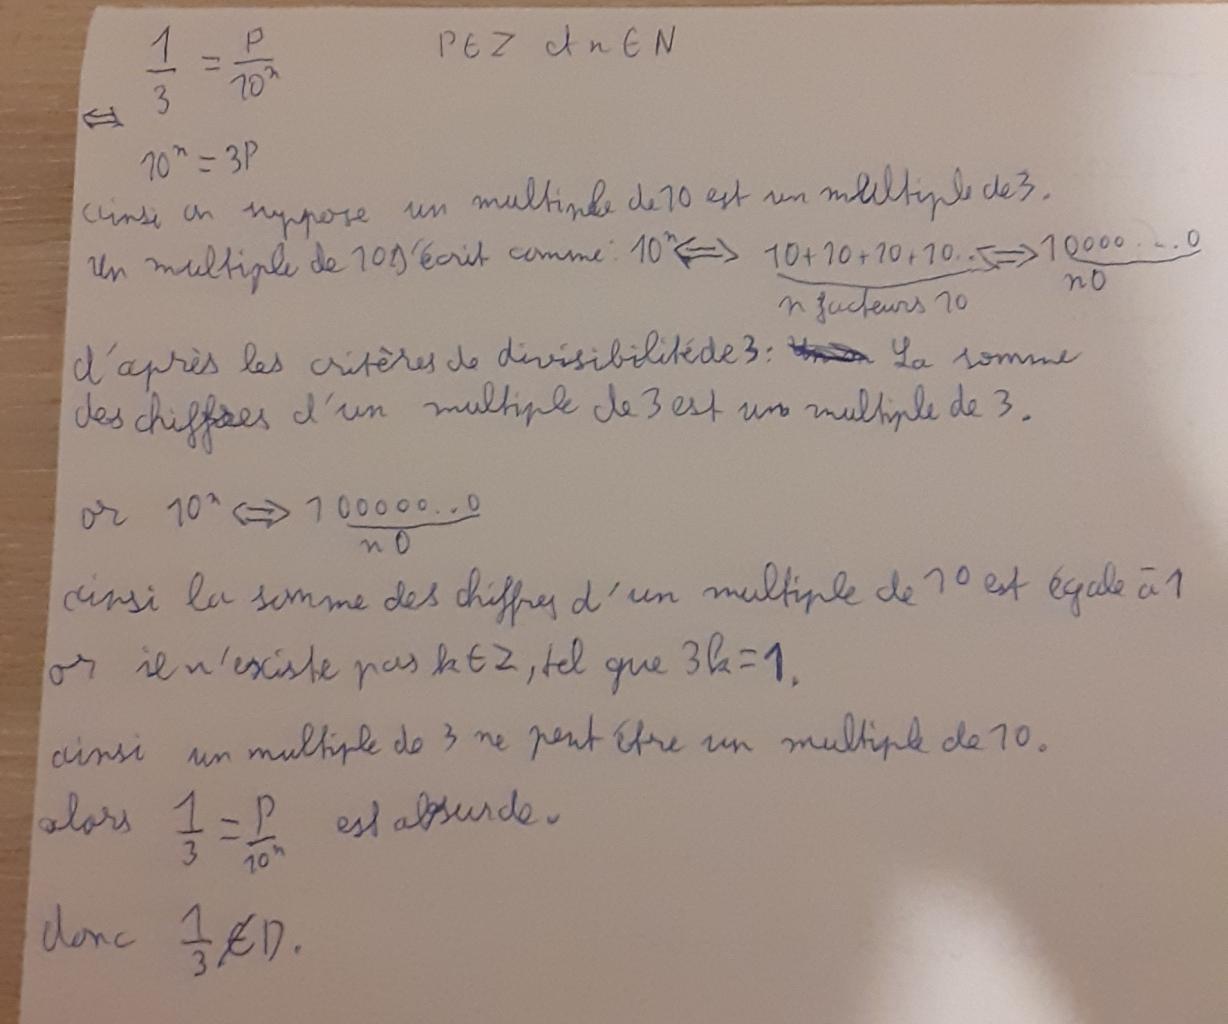 1/3 = P/10ⁿ P∈Z et n∈N
⇔
10ⁿ = 3P
ainsi on suppose un multiple de 10 est un multiple de 3.
Un multiple de 10 s'écrit comme: 10ⁿ ⇔ 10+10+10+10.. ⇔ 10000...0
n facteurs 10 n 0
d'après les critères de divisibilité de 3: La somme
des chiffres d'un multiple de 3 est un multiple de 3.
or 10ⁿ ⇔ 100000..0
n 0
ainsi la somme des chiffres d'un multiple de 10 est égale à 1
or il n'existe pas k∈Z, tel que 3k=1.
ainsi un multiple de 3 ne peut être un multiple de 10.
alors 1/3 = P/10ⁿ est absurde.
donc 1/3 ∉ D.